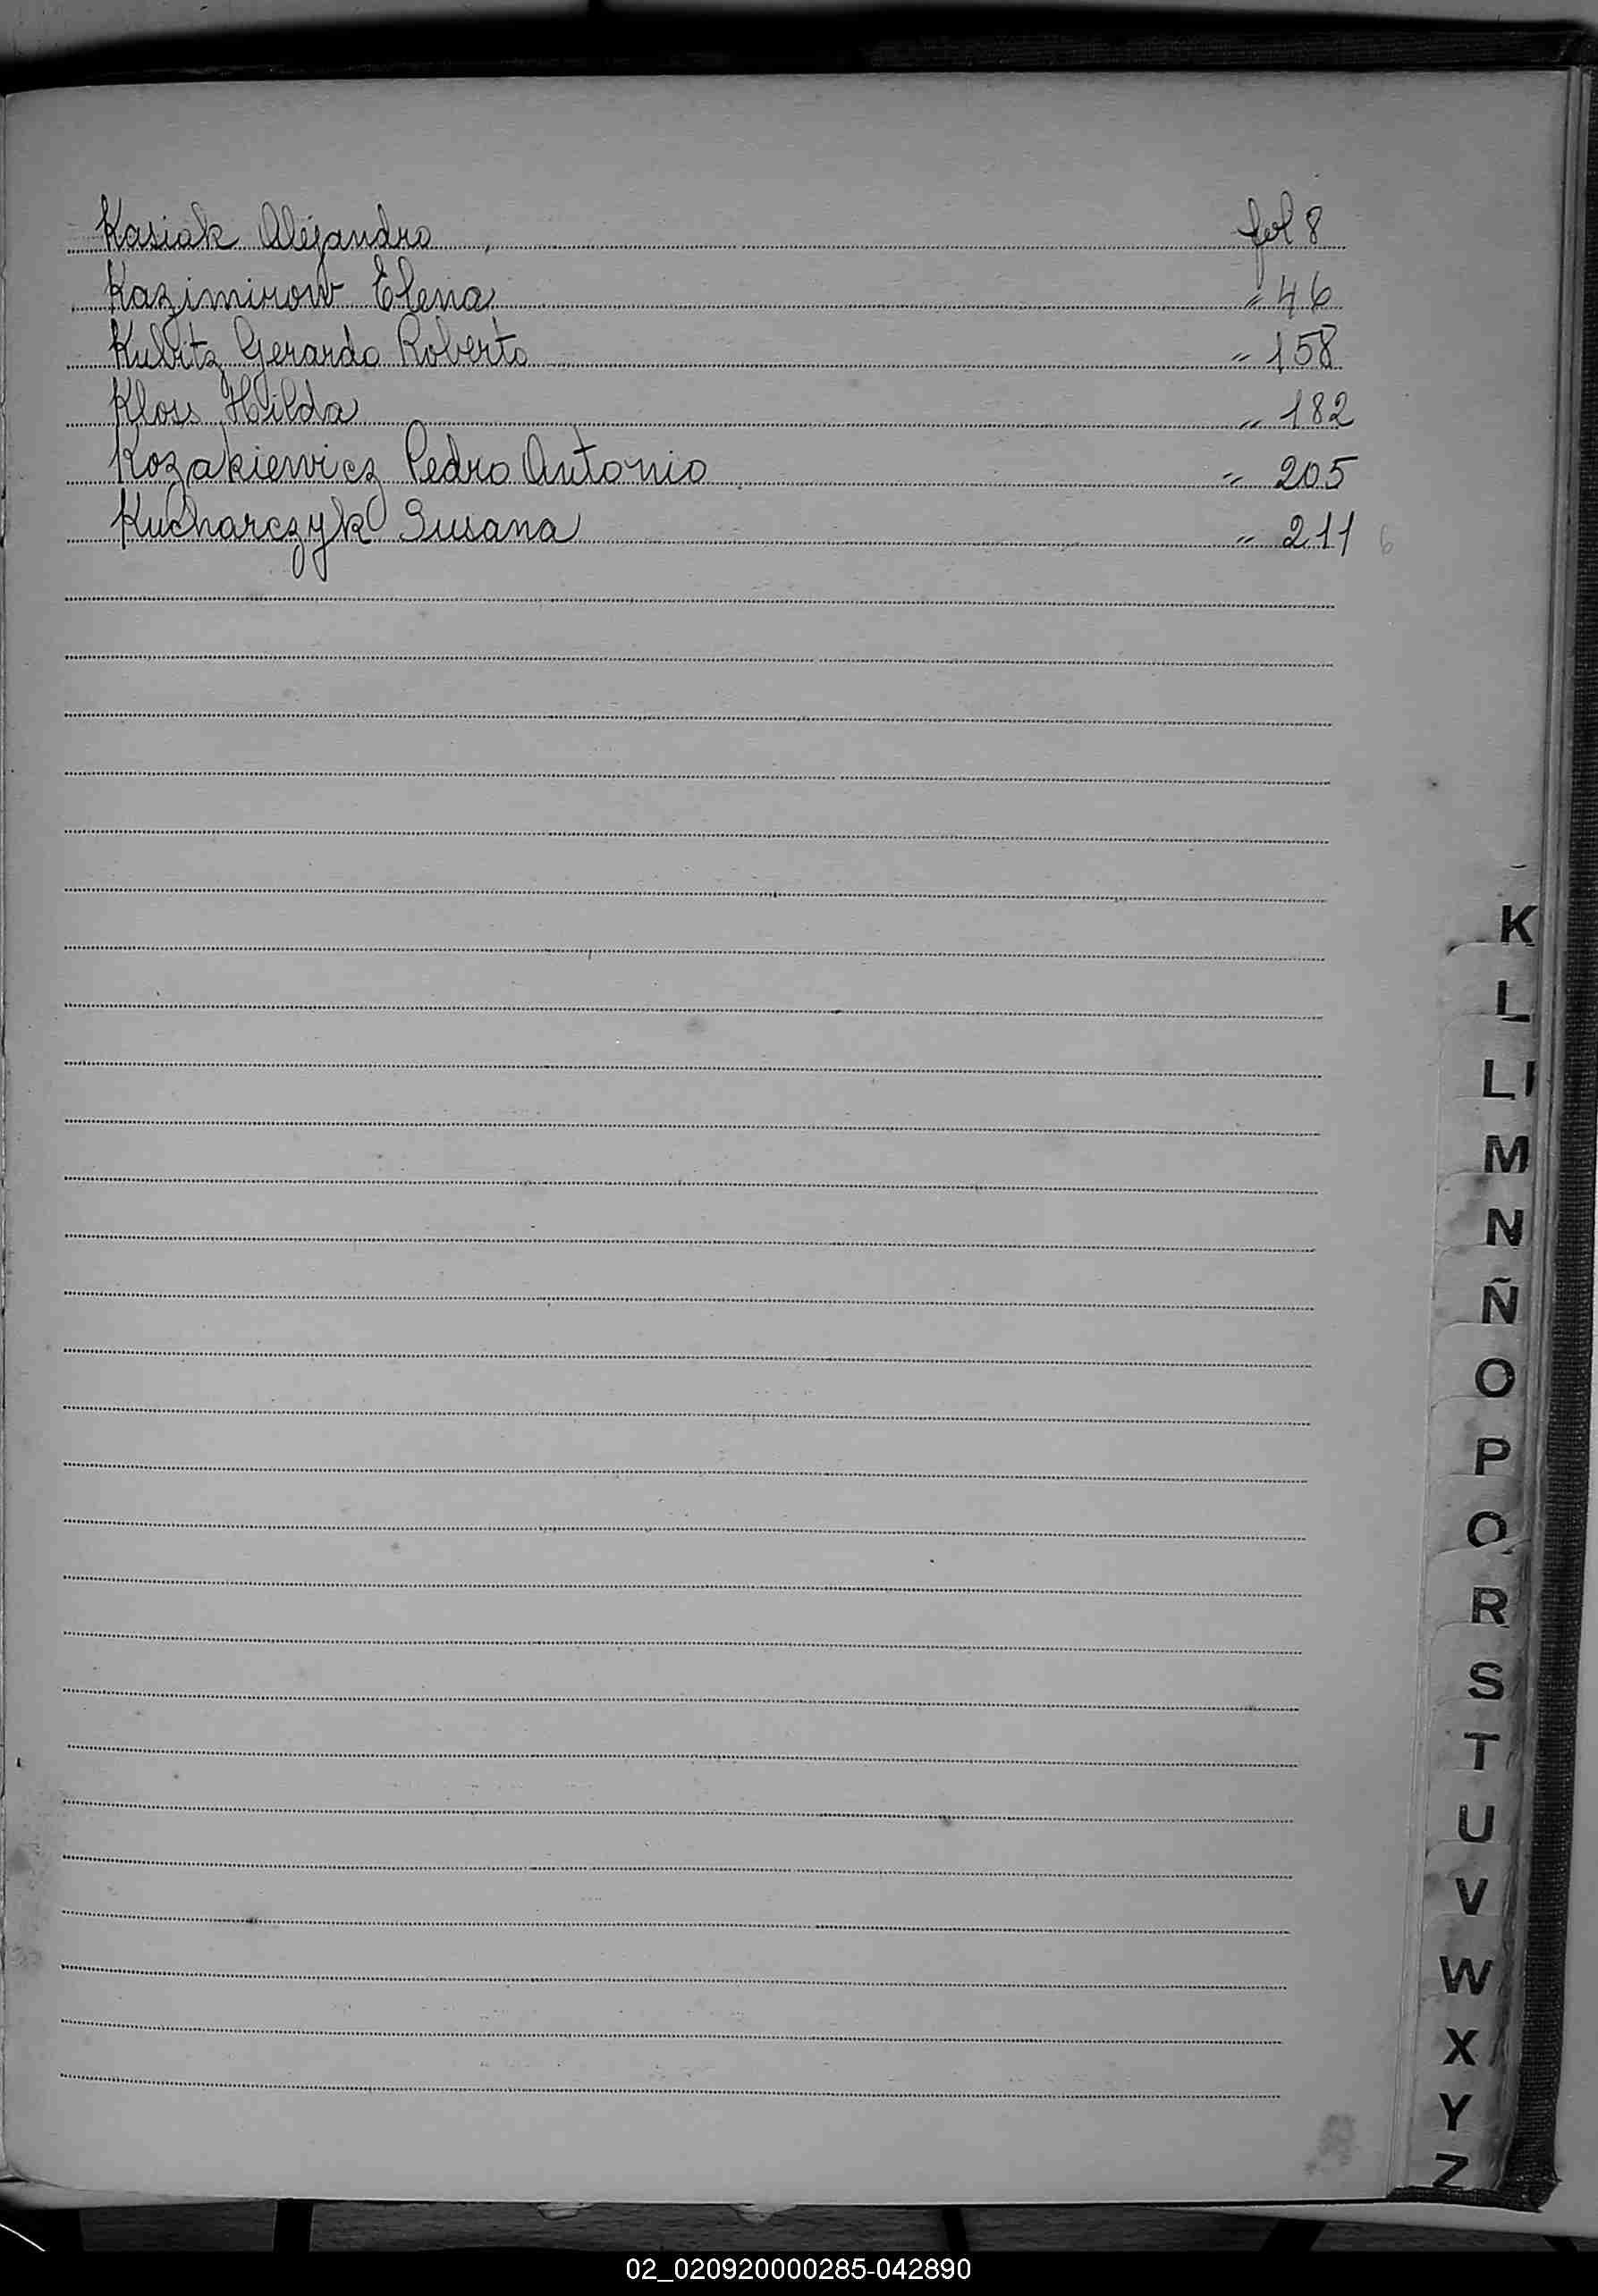 Kasiak Alejandro fol 8
Kazimirow Elena " 46
Kubitz Gerardo Roberto " 158
Kloss Hilda " 182
Kozakiewicz Pedro Antonio " 205
Kucharczyk Susana " 211 6
K
L
Ll
M
N
Ñ
O
P
Q
R
S
T
U
V
W
X
Y
Z
02_020920000285-042890